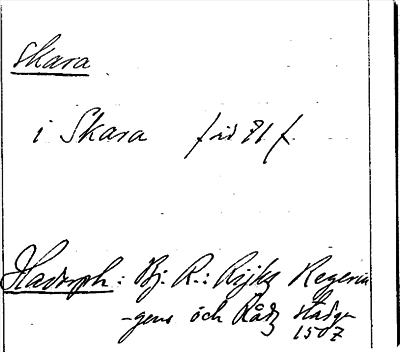 Skara
i Skara sid 81 f.
Hadorph: Bj. R.: Rijkz Regerin
-gens och Rådz stadga
1507